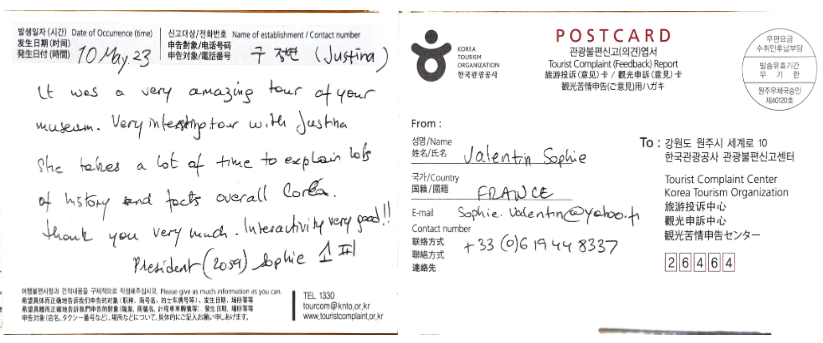 발생일자(시간) Date of Occurrence (time)
发生日期(时间)
発生日付(時間)
10 May. 23
신고대상/전화번호 Name of establishment / Contact number
申告對象/电话号码
申告対象/電話番号
구 정변 (Justina)
It was a very amazing tour of your
museum. Very interesting tour with Justina
She takes a lot of time to explain lots
of history and facts overall Corea.
thank you very much. Interactivity very good!!
President (2059) Sophie 소피
여행불편사항과 건의내용을 구체적으로 작성해주십시오. Please give as much information as you can.
TEL 1330
tourcom@knto,or,kr
www,touristcomplaint,or,kr
KOREA
TOURISM
ORGANIZATION
한국관광공사
POSTCARD
관광불편신고(의견)엽서
Tourist Complaint (Feedback) Report
旅游投诉(意见)卡 / 觀光申訴(意見)卡
観光苦情申告(ご意見)用ハガキ
우편요금
수취인후납부담
발송유효기간
무 기 한
원주우체국승인
제40120호
From :
성명/Name
姓名/氏名
Valentin Sophie
국가/Country
国籍/國籍
FRANCE
E-mail
Sophie.Valentin@yahoo.fr
Contact number
联络方式
聯絡方式
連絡先
+33 (0)6 19 44 8337
To : 강원도 원주시 세계로 10
한국관광공사 관광불편신고센터
Tourist Complaint Center
Korea Tourism Organization
旅游投诉中心
觀光申訴中心
観光苦情申告センター
26464